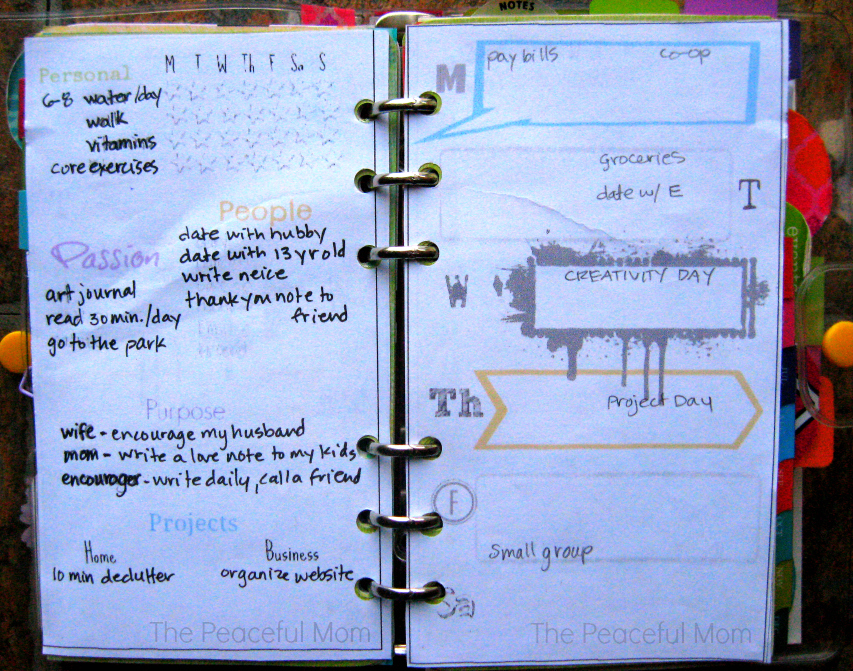 NOTES
Personal M T W Th F Sa S
6-8 water/day
walk
vitamins
core exercises
People
date with hubby
date with 13 yr old
write neice
thank you note to
friend
Passion
art journal
read 30 min./day
go to the park
Purpose
wife - encourage my husband
mom - write a love note to my kids
encourager - write daily, call a friend
Projects
Home
10 min declutter
Business
organize website
The Peaceful Mom
M
pay bills co-op
T
groceries
date w/ E
W
CREATIVITY DAY
Th
Project Day
F
Small group
Sa
The Peaceful Mom